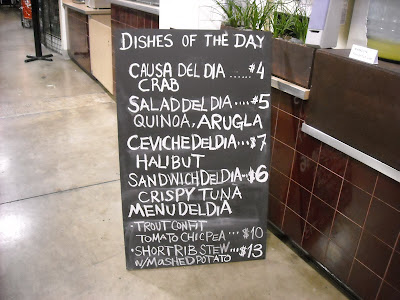 DISHES OF THE DAY
CAUSA DEL DIA ...... $4
CRAB
SALAD DEL DIA .... $5
QUINOA, ARUGLA
CEVICHE DEL DIA ... $7
HALIBUT
SANDWICH DEL DIA .. $6
CRISPY TUNA
MENU DEL DIA
• TROUT CONFIT
TOMATO CHIC PEA ... $10
• SHORT RIB STEW ... $13
W/ MASHED POTATO